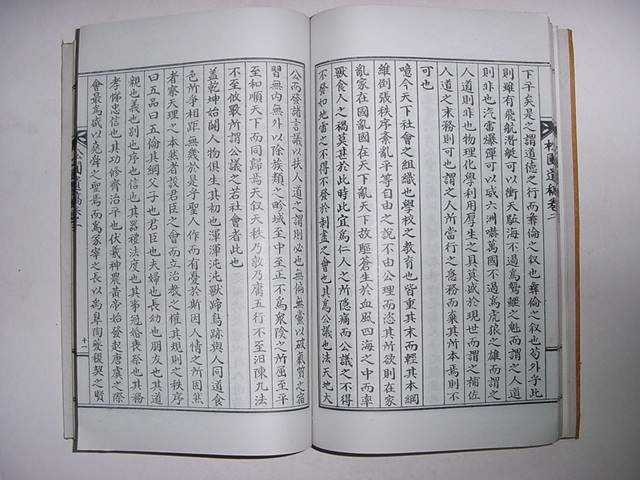 松圃遺稿卷二
下平矣是之謂道德之行而彝倫之叙也苟外乎此
則雖有飛航潛艇可以衝天駈海不過爲之魁而謂之人道
則非也汽雷爆彈可以威六洲嚇萬國不過爲虎狼之雄而謂之
人道則非也物理化學利用厚生之具莫盛於現世而謂之補佐
人道之末務則可也謂之人之所當行之急務而棄其所本焉則不
可也
噫今天下社會之組織也學校之教育也皆重其末而輕其本綱
維倒張秩序紊亂平之說不由公理而恣其所欲則在家
亂家在國亂國在天下亂天下故駈蒼生於血風四海之中而率
獸食人之禍莫甚於此時此宜爲仁人之所隱痛而公議之不得
不發如地雷之不得不發於剥盡之會也其爲公議也法天地大
公而發諸言議以扶人道之謂則必也無偏無黨以破氣質之宿
習無内無外以除族類之畛域至中至正不爲衆陰之所屈至平
至和順天下而同歸焉天叙天秩乃敦乃庸五行不至汩陳九法
不至攸斁所謂公議之若社會者此也
蓋乾坤始闢人物俱生其初也渾渾沌沌獸蹄鳥跡與人同道食
色所爭相距無幾於是乎聖人作而有憂於斯因人情之所固然
者察天理之本然者設君臣之會而立治教之權其規則之秩序
曰五品曰五倫其綱父子也君臣也夫婦也長幼也朋友也其道
親也義也別也序也信也其器禮法度也其事冠婚喪祭也其務
孝悌忠信也其功修齊治平也伏羲神農黃帝始發起唐虞之際
會最爲盛以堯舜之聖焉而爲冢宰之長以禹皐陶夔稷契之賢
十二